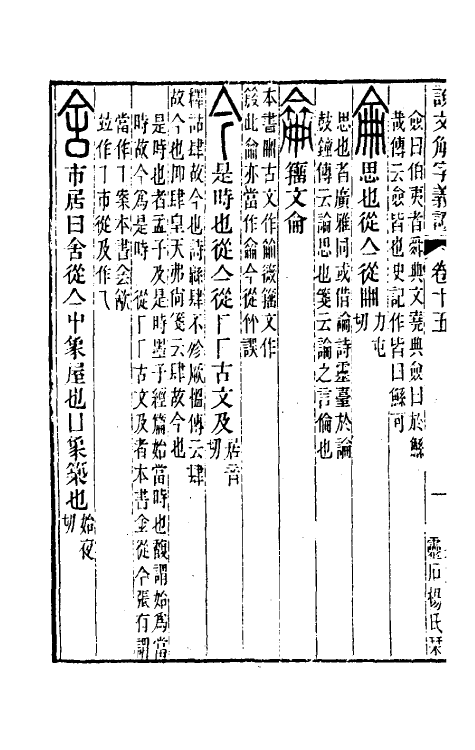 說文解字義證 卷十五 一 靈石楊氏栞
僉曰伯夷者舜典文堯典僉曰於鯀
哉傳云僉皆也史記作皆曰鯀可
侖 思也從亼從冊 力屯切
思也者廣雅同或借論詩靈臺於論
鼓鐘傳云論思也箋云論之言倫也
籀文侖
本書冊古文作𠕋籀文作
此侖亦當作侖今從竹誤
今 是時也從亼從乁乁古文及 居音切
釋詁肆故今也詩緜肆不殄厥慍傳云肆
故今也抑肆皇天弗尚箋云肆故今也
是時也者孟子及是時墨子經篇始當時也馥謂始爲當
時故今爲是時 從乁乁古文及者本書金從今張有謂
當作乁案本書㑹㱃
竝作乁市從及作乁
舍 市居曰舍從亼屮象屋也囗象築也 始夜切